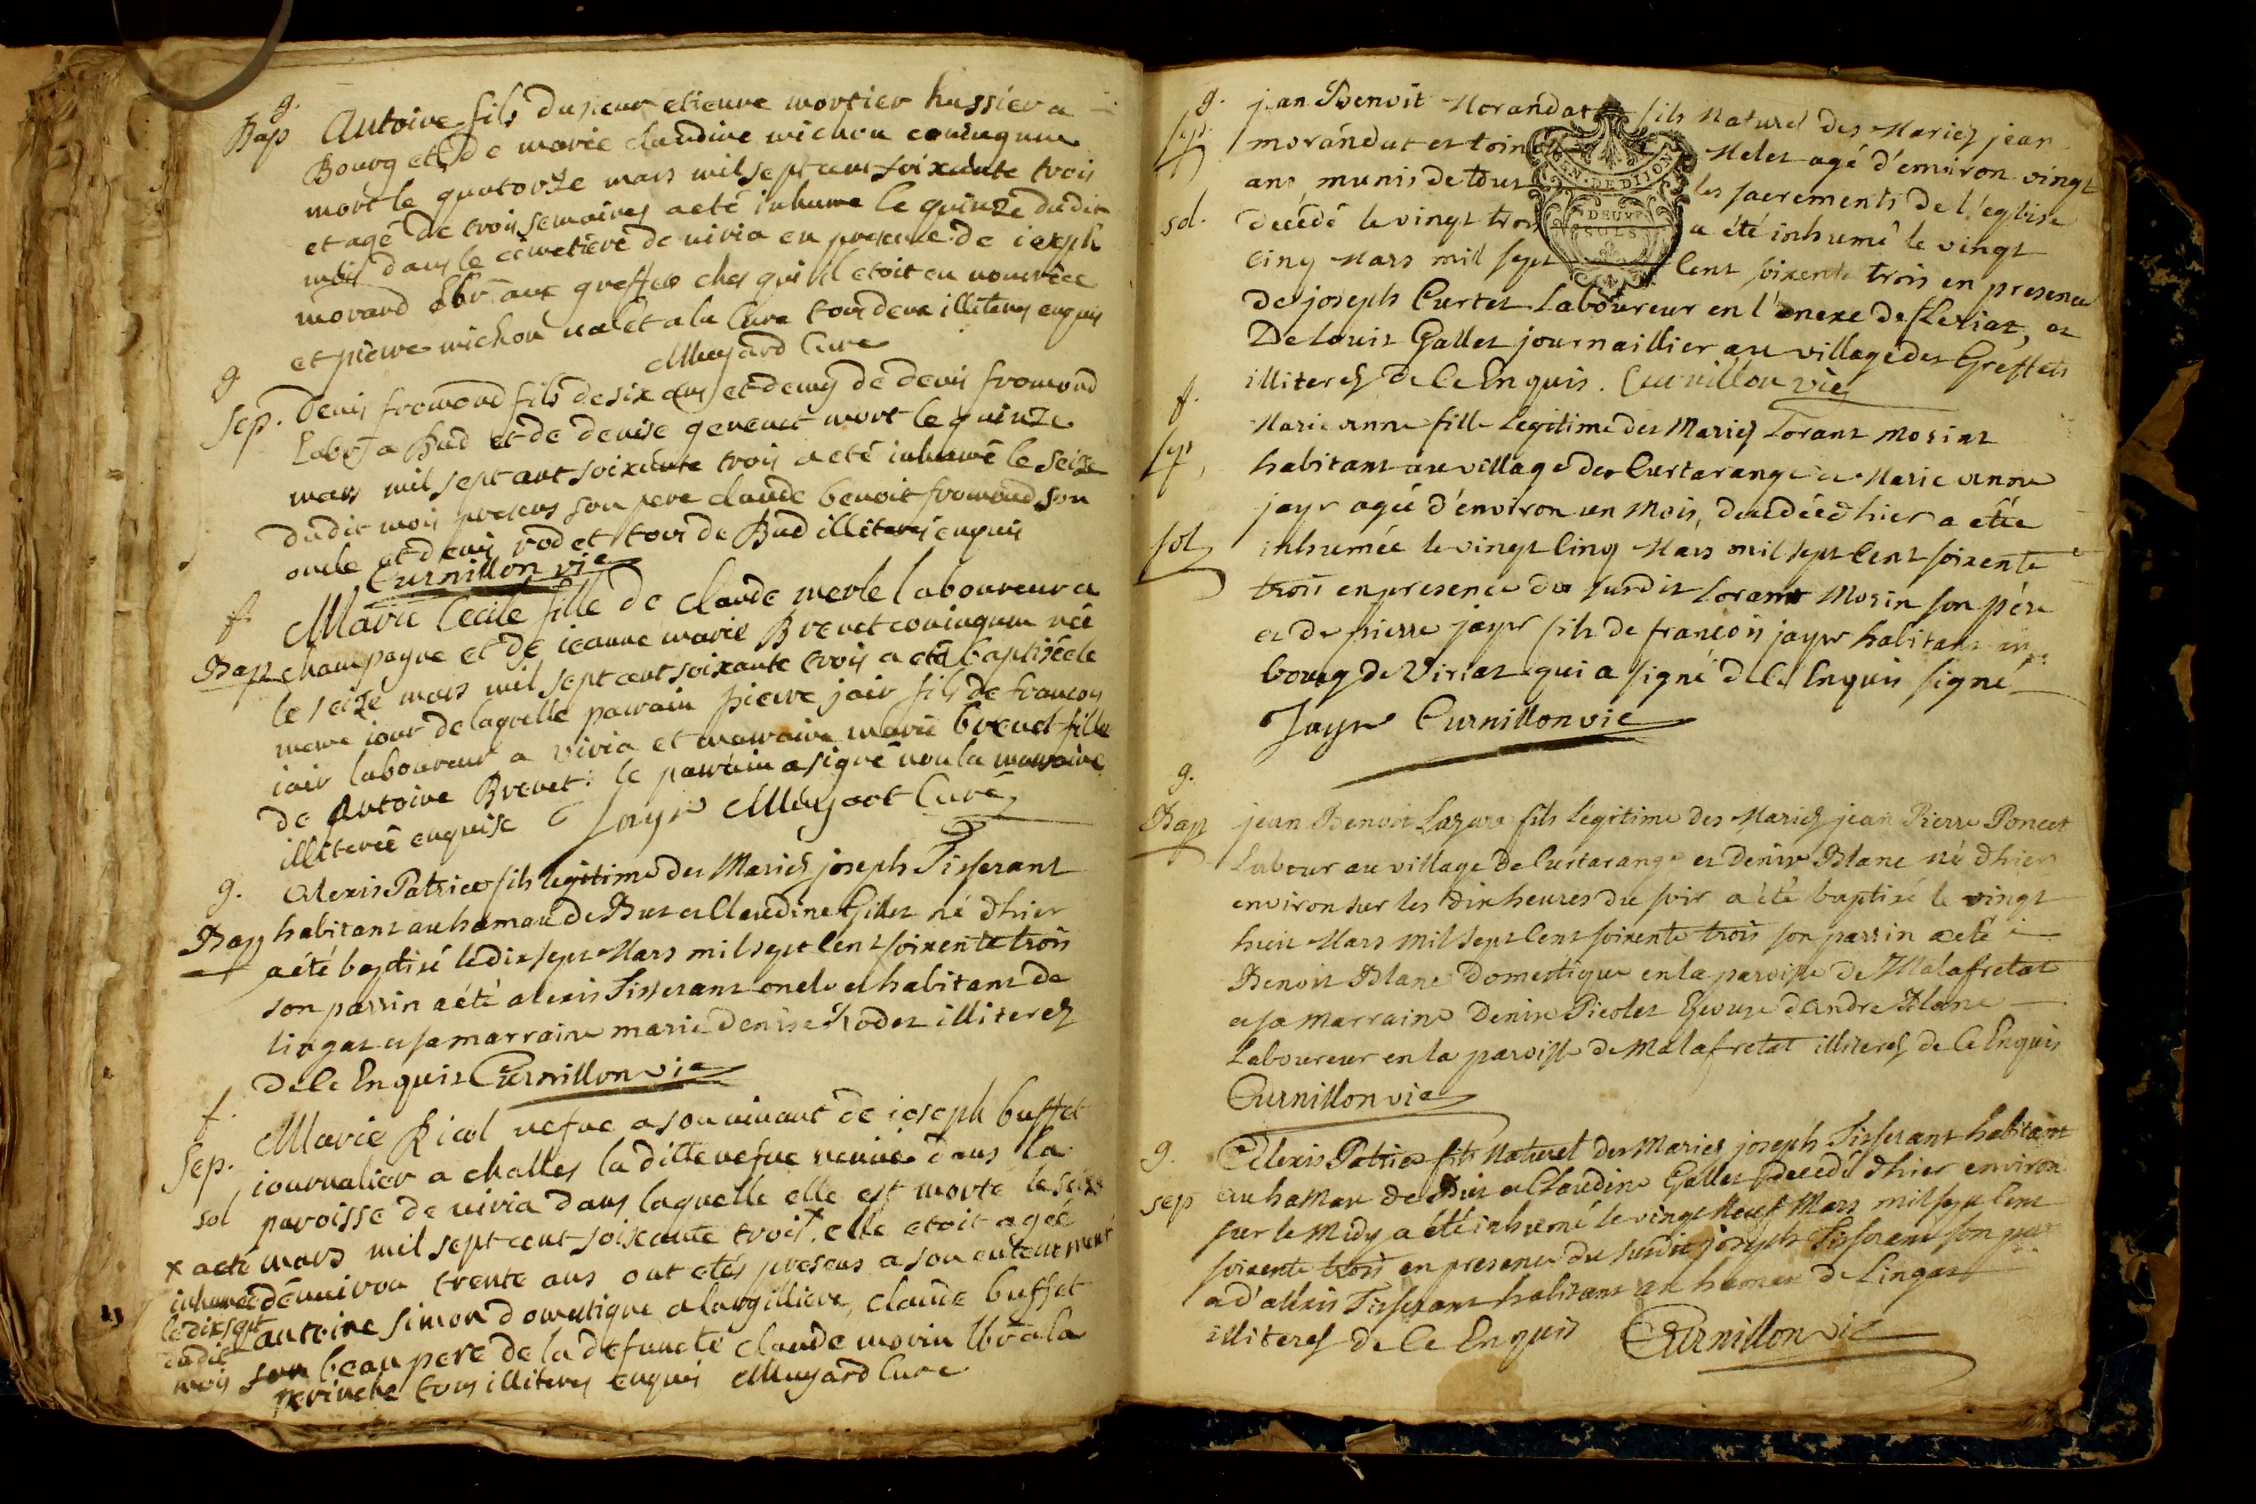 g.
Bap Antoine fils du sieur etienne mortier hussier a
Bourg et de marie claudine michon conjugum
mort le quatorze mars mil sept cent soixante trois
et agé de trois semaines a eté inhumé le quinze dudit
mois dans le cimetiere de viria en presence de joseph
morand lbr. aux greffes ches qui il etoit en nourrice
et pierre michon valet a la cure tous deux illiteres enquis
Muyard Cure
g
Sep. Denis fromond fils de six ans et demy de denis fromond
labr. a Bud et de denise gevenet mort le quinze
mars mil sept cent soixante trois a eté inhumé le seize
dudit mois presens son pere claude benoit fromond son
oncle et denis rodet tous de Bud illiteres enquis
Curnillon vic
f.
Marie Cecile fille de claude merle laboureur a
Bap champagne et de jeanne marie Brevet conjugum née
le seize mars mil sept cent soixante trois a eté baptisée le
meme jour de laquelle parrain pierre jair fils de francoy
jair laboureur a viria et marraine marie brevet fille
de Antoine Brevet: le parrain a signé non la marraine
illiterée enquise Jayr Muyard Curé
g. Alexis Patrice fils legitime des Mariez joseph Tisserant
habitant au hamau de But et Claudine Gillet né dhier
Bap a été baptisé le dix sept Mars mil sept Cent soixente trois
son parrin a été alexis Tisserant oncle et habitant de
lingat et sa marraine marie denise Rodet illiterez
de Ce Enquis Curnillon vic
f.
Sep. Marie Ricol vefve a son vivant de joseph buffet
journalier a challes la ditte vefve venüe dans la
sol paroisse de viria dans laquelle elle est morte le seize
mars mil sept cent soixante trois x elle etoit agée
x a eté inhumée le dix sept dudit mois
d'environ trente ans ont etés presens a son enterrement
antoine simon domestique a largilliere, claude buffet
son beau pere de la defuncte claude morin lbr. a la
pervinche tous illiteres enquis Muyard Cure
g. jean Benoit Morandat fils Naturel des Mariez jean
sep. morandat et toin Melet agé d'environ vingt
ans munis de tous les sacrements de l'eglise
sol. decédé le vingt trois a été inhumé le vingt
Cinq Mars mil sept Cent soixente trois en presence
de joseph Curtet Laboureur en l'anexe de fleriat, et
De Louis Gallet journaillier au village des Greffets
illiterez de Ce Enquis. Curnillon vic
GEN. DE DIJON
DEUX
SOLS
f.
Marie anne fille legitime des Mariez Lorant Morint
sep. habitant au village de Curtarange et Marie anne
jayr agée d'environ un Mois, decedée dhier a eté
sol inhumée le vingt Cinq Mars mil sept Cent soixente
trois en presence du susdit Lorant Morin son pére
et de pierre jayr fils de francois jayr habitant au
bourg de Viriat qui a signé de Ce Enquis signé
Jayr Curnillon vic
g.
Bap jean Benoit Lazare fils legitime des Mariez jean Pierre Poncet
Labour au village de Curtarange et Denise Blanc né dhier
environ sur les dix heures du soir a été baptisé le vingt
huit Mars mil sept Cent soixente trois son parrin a eté
Benoit Blanc Domestique en la paroisse de Malafretat
et sa marraine Denise Picolet Epouse d'andre Blanc
Laboureur en la paroisse de Malafretat illiterez de Ce Enquis
Curnillon vic
g. Alexis Patrice fils Naturel des Mariez joseph Tisserant habitant
sep au haMau de But et Claudine Gallet decedé dhier environ
sur le Midy a été inhumé le vingt Neuf Mars mil sept Cent
soixente trois en presence du susdit joseph Tisserant son pere
et d'alexis Tisserant habitant au hamau de Lingat
illiterez de Ce Enquis Curnillon vic